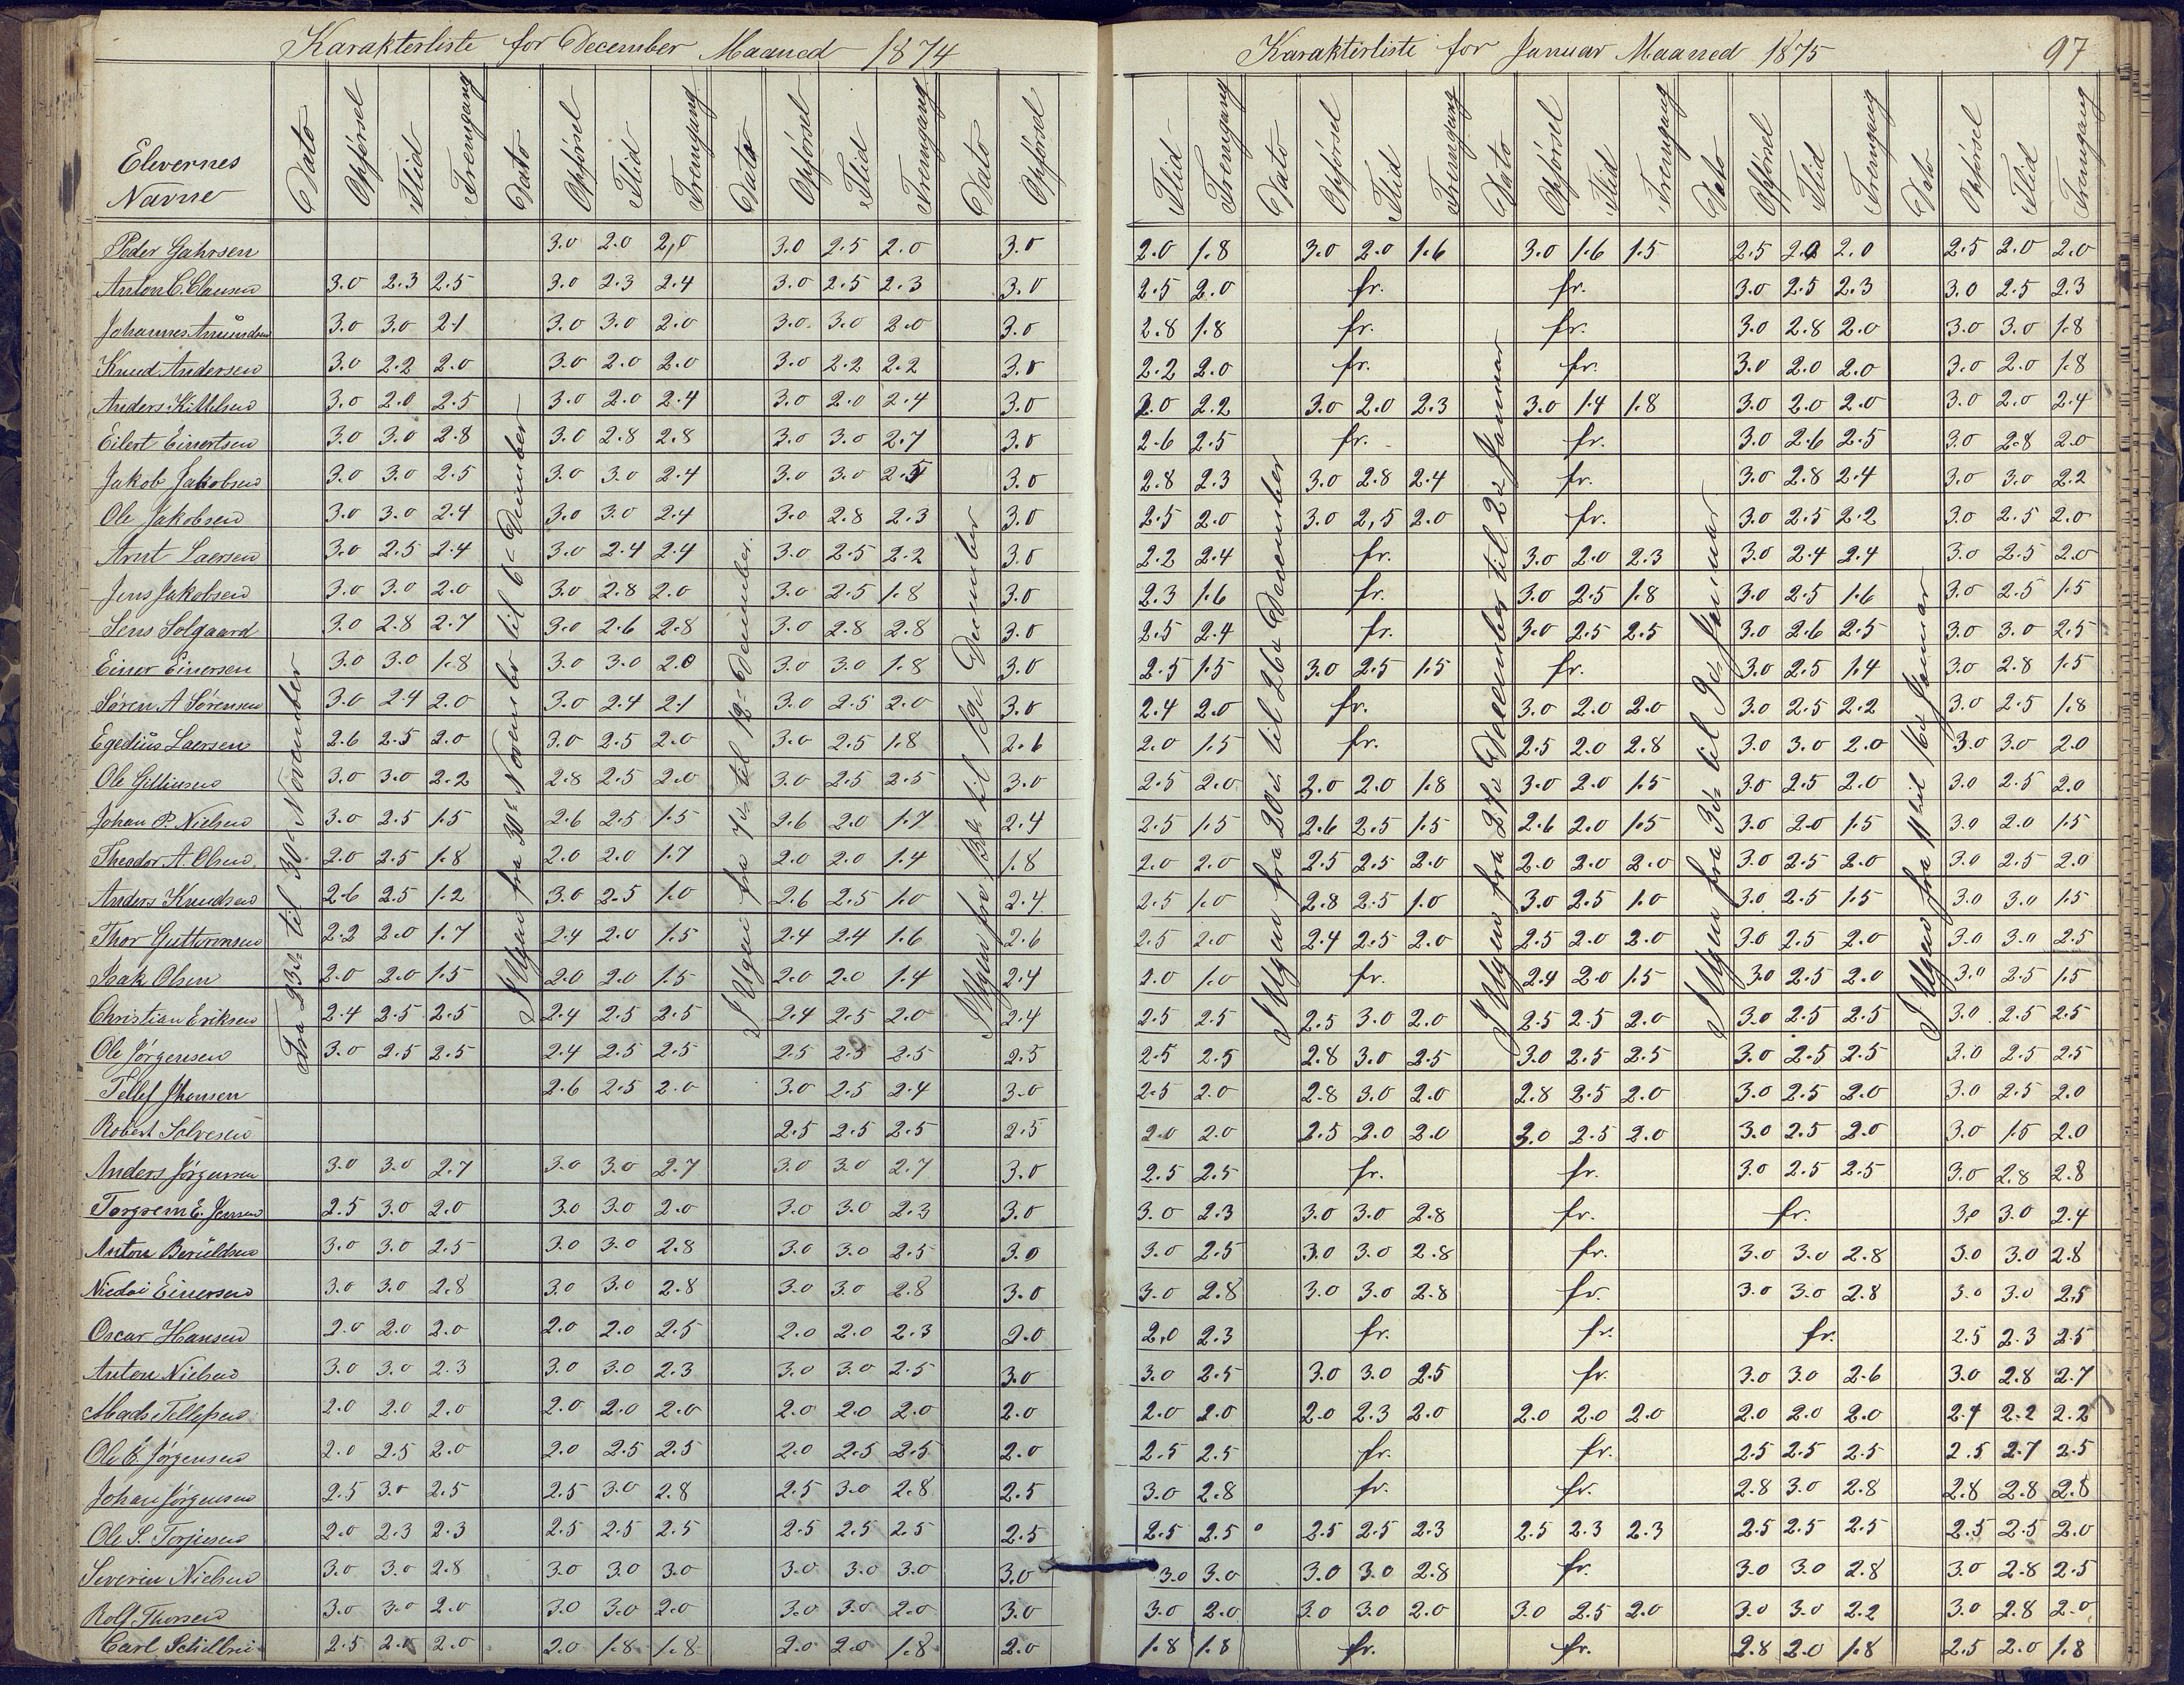 Karakterliste for December Maaned 1874
Elevernes Navne | Dato | Opførsel | Flid | Fremgang | Dato | Opførsel | Flid | Fremgang | Dato | Opførsel | Flid | Fremgang | Dato | Opførsel
Fra 23de til 30te November
I Ugen fra 30te November til 6te December
I Ugen fra 7de til 12te December
I Ugen fra 13de til 19de December
Peder Gahrsen 3.0 2.0 2,0 3.0 2.5 2.0 3.0
Anton C. Clausen 3.0 2.3 2.5 3.0 2.3 2.4 3.0 2.5 2.3 3.0
Johannes Amundsen 3.0 3.0 2.1 3.0 3.0 2.0 3.0 3.0 2.0 3.0
Knud Andersen 3.0 2.2 2.0 3.0 2.0 2.0 3.0 2.2 2.2 3.0
Anders Kittelsen 3.0 2.0 2.5 3.0 2.0 2.4 3.0 2.0 2.4 3.0
Eilert Einertsen 3.0 3.0 2.8 3.0 2.8 2.8 3.0 3.0 2.7 3.0
Jakob Jakobsen 3.0 3.0 2.5 3.0 3.0 2.4 3.0 3.0 2.5 3.0
Ole Jakobsen 3.0 3.0 2.4 3.0 3.0 2.4 3.0 2.8 2.3 3.0
Arnt Laersen 3.0 2.5 2.4 3.0 2.4 2.4 3.0 2.5 2.2 3.0
Jens Jakobsen 3.0 3.0 2.0 3.0 2.8 2.0 3.0 2.5 1.8 3.0
Jens Solgaard 3.0 2.8 2.7 3.0 2.6 2.8 3.0 2.8 2.8 3.0
Einer Einersen 3.0 3.0 1.8 3.0 3.0 2.0 3.0 3.0 1.8 3.0
Søren A Sørensen 3.0 2.4 2.0 3.0 2.4 2.1 3.0 2.5 2.0 3.0
Egedius Laersen 2.6 2.5 2.0 3.0 2.5 2.0 3.0 2.5 1.8 2.6
Ole 3.0 3.0 2.2 2.8 2.5 2.0 3.0 2.5 2.5 3.0
Johan P. Nielsen 3.0 2.5 1.5 2.6 2.5 1.5 2.6 2.0 1.7 2.4
Theodor A. Olsen 2.0 2.5 1.8 2.0 2.0 1.7 2.0 2.0 1.4 1.8
Anders Knudsen 2.6 2.5 1.2 3.0 2.5 1.0 2.6 2.5 1.0 2.4
Thor Guttormsen 2.2 2.0 1.7 2.4 2.0 1.5 2.4 2.4 1.6 2.6
Isak Olsen 2.0 2.0 1.5 2.0 2.0 1.5 2.0 2.0 1.4 2.4
Christian Eriksen 2.4 2.5 2.5 2.4 2.5 2.5 2.4 2.5 2.0 2.4
Ole Jørgensen 3.0 2.5 2.5 2.4 2.5 2.5 2.5 2.5 2.5 2.5
Tellef Jhonsen 2.6 2.5 2.0 3.0 2.5 2.4 3.0
Robert Solvesen 2.5 2.5 2.5 2.5
Anders Jørgensen 3.0 3.0 2.7 3.0 3.0 2.7 3.0 3.0 2.7 3.0
Torgrem E. Jensen 2.5 3.0 2.0 3.0 3.0 2.0 3.0 3.0 2.3 3.0
Anton Beruldsen 3.0 3.0 2.5 3.0 3.0 2.8 3.0 3.0 2.5 3.0
Nicolai Einersen 3.0 3.0 2.8 3.0 3.0 2.8 3.0 3.0 2.8 3.0
Oscar Hansen 2.0 2.0 2.0 2.0 2.0 2.5 2.0 2.0 2.3 2.0
Anton Nielsen 3.0 3.0 2.3 3.0 3.0 2.3 3.0 3.0 2.5 3.0
Mads Tellefsen 2.0 2.0 2.0 2.0 2.0 2.0 2.0 2.0 2.0 2.0
Ole E. Jørgensen 2.0 2.5 2.0 2.0 2.5 2.5 2.0 2.5 2.5 2.0
Johan Jørgensen 2.5 3.0 2.5 2.5 3.0 2.8 2.5 3.0 2.8 2.5
Ole S. Torjusen 2.0 2.3 2.3 2.5 2.5 2.5 2.5 2.5 2.5 2.5
Severin Nielsen 3.0 3.0 2.8 3.0 3.0 3.0 3.0 3.0 3.0 3.0
Rolf Thorsen 3.0 3.0 2.0 3.0 3.0 2.0 3.0 3.0 2.0 3.0
Carl 2.5 2.0 2.0 2.0 1.8 1.8 2.0 2.0 1.8 2.0
Karakterliste for Januar Maaned 1875
97
Flid | Fremgang | Dato | Opførsel | Flid | Fremgang | Dato | Opførsel | Flid | Fremgang | Dato | Opførsel | Flid | Fremgang | Dato | Opførsel | Flid | Fremgang
I Ugen fra 20de til 26de December
I Ugen fra 27de December til 2de Januar
I Ugen fra 3de til 9de Januar
I Ugen fra 11te til 16de Januar
2.0 1.8 3.0 2.0 1.6 3.0 1.6 1.5 2.5 2.0 2.0 2.5 2.0 2.0
2.5 2.0 fr. fr. 3.0 2.5 2.3 3.0 2.5 2.3
2.8 1.8 fr. fr. 3.0 2.8 2.0 3.0 3.0 1.8
2.2 2.0 fr. fr. 3.0 2.0 2.0 3.0 2.0 1.8
2.0 2.2 3.0 2.0 2.3 3.0 1.4 1.8 3.0 2.0 2.0 3.0 2.0 2.4
2.6 2.5 fr. fr. 3.0 2.6 2.5 3.0 2.8 2.0
2.8 2.3 3.0 2.8 2.4 fr. 3.0 2.8 2.4 3.0 3.0 2.2
2.5 2.0 3.0 2,5 2.0 fr. 3.0 2.5 2.2 3.0 2.5 2.0
2.2 2.4 fr. 3.0 2.0 2.3 3.0 2.4 2.4 3.0 2.5 2.0
2.3 1.6 fr. 3.0 2.5 1.8 3.0 2.5 1.6 3.0 2.5 1.5
2.5 2.4 fr. 3.0 2.5 2.5 3.0 2.6 2.5 3.0 3.0 2.5
2.5 1.5 3.0 2.5 1.5 fr. 3.0 2.5 1.4 3.0 2.8 1.5
2.4 2.0 fr. 3.0 2.0 2.0 3.0 2.5 2.2 3.0 2.5 1.8
2.0 1.5 fr. 2.5 2.0 2.8 3.0 3.0 2.0 3.0 3.0 2.0
2.5 2.0 2.0 2.0 1.8 3.0 2.0 1.5 3.0 2.5 2.0 3.0 2.5 2.0
2.5 1.5 2.6 2.5 1.5 2.6 2.0 1.5 3.0 2.0 1.5 3.0 2.0 1.5
2.0 2.0 2.5 2.5 2.0 2.0 2.0 2.0 3.0 2.5 2.0 3.0 2.5 2.0
2.5 1.0 2.8 2.5 1.0 3.0 2.5 1.0 3.0 2.5 1.5 3.0 3.0 1.5
2.5 2.0 2.4 2.5 2.0 2.5 2.0 2.0 3.0 2.5 2.0 3.0 3.0 2.5
2.0 1.0 fr. 2.4 2.0 1.5 3.0 2.5 2.0 3.0 2.5 1.5
2.5 2.5 2.5 3.0 2.0 2.5 2.5 2.0 3.0 2.5 2.5 3.0 2.5 2.5
2.5 2.5 2.8 3.0 2.5 3.0 2.5 2.5 3.0 2.5 2.5 3.0 2.5 2.5
2.5 2.0 2.8 3.0 2.0 2.8 2.5 2.0 3.0 2.5 2.0 3.0 2.5 2.0
2.0 2.0 2.5 2.0 2.0 3.0 2.5 2.0 3.0 2.5 2.0 3.0 1.5 2.0
2.5 2.5 fr. fr. 3.0 2.5 2.5 3.0 2.8 2.8
3.0 2.3 3.0 3.0 2.8 fr. fr. 3.0 3.0 2.4
3.0 2.5 3.0 3.0 2.8 fr. 3.0 3.0 2.8 3.0 3.0 2.8
3.0 2.8 3.0 3.0 2.8 fr. 3.0 3.0 2.8 3.0 3.0 2.5
2.0 2.3 fr. fr. fr. 2.5 2.3 2.5
3.0 2.5 3.0 3.0 2.5 fr. 3.0 3.0 2.6 3.0 2.8 2.7
2.0 2.0 2.0 2.3 2.0 2.0 2.0 2.0 2.0 2.0 2.0 2.4 2.2 2.2
2.5 2.5 fr. fr. 2.5 2.5 2.5 2.5 2.7 2.5
3.0 2.8 fr. fr. 2.8 3.0 2.8 2.8 2.8 2.8
2.5 2.5 2.5 2.5 2.3 2.5 2.3 2.3 2.5 2.5 2.5 2.5 2.5 2.0
3.0 3.0 3.0 3.0 2.8 fr. 3.0 3.0 2.8 3.0 2.8 2.5
3.0 2.0 3.0 3.0 2.0 3.0 2.5 2.0 3.0 3.0 2.2 3.0 2.8 2.0
1.8 1.8 fr. fr. 2.8 2.0 1.8 2.5 2.0 1.8